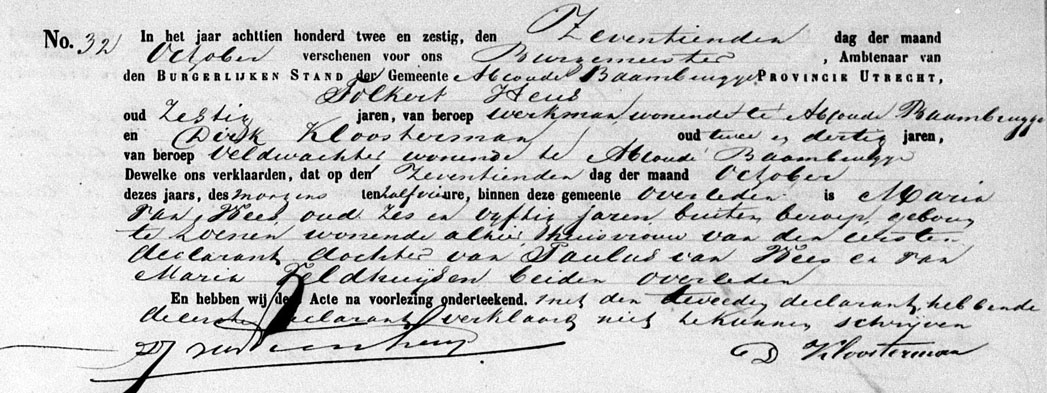 No. 32 In het jaar achttien honderd twee en zestig, den Zeventienden dag der maand
October verschenen voor ons Burgemeester, Ambtenaar van
den Burgerlijken Stand der Gemeente Abcoude Baambrugge Provincie Utrecht,
Folkert Heus
oud Zestig jaren, van beroep werkman wonende te Abcoude Baambrugge
en Dirk Kloosterman oud twee en dertig jaren,
van beroep Veldwachter wonende te Abcoude Baambrugge
Dewelke ons verklaarden, dat op den Zeventienden dag der maand October
dezes jaars, des morgens ten half vier ure, binnen deze gemeente overleden is Maria
van Hees oud zes en vyftig jaren buiten beroep geboren
te Loenen wonende alhier huisvrouw van den eersten
declarant dochter van Paulus van Hees en van
Maria Veldhuijsen beiden overleden
En hebben wij deze Acte na voorlezing onderteekend. met den tweeden declarant, hebbende
de eerste declarant verklaard niet te kunnen schrijven
D Kloosterman